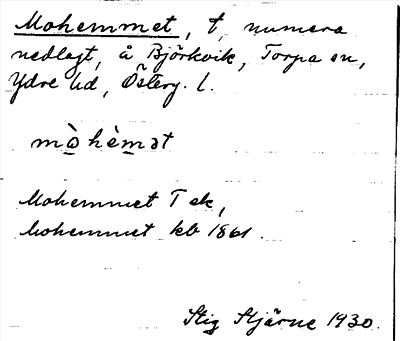 Mohemmet, t, numera
nedlagt, å Björkvik, Torpa sn,
Ydre hd, Österg. l.
mo̱hèm̱ət
Mohemmet T ek,
Mohemmet kb 1861.
Stig Stjärne 1930.